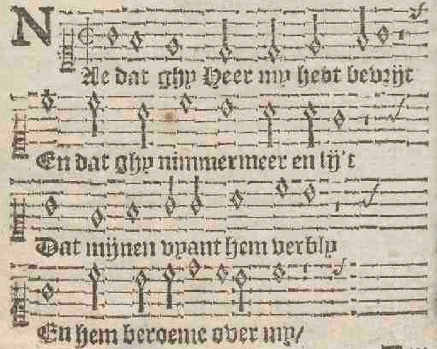 NAe dat ghy Heer my hebt bevrijt
En dat ghy nimmermeer en lij't
Dat mijnen vyant hem verbly
En hem beroeme over my/